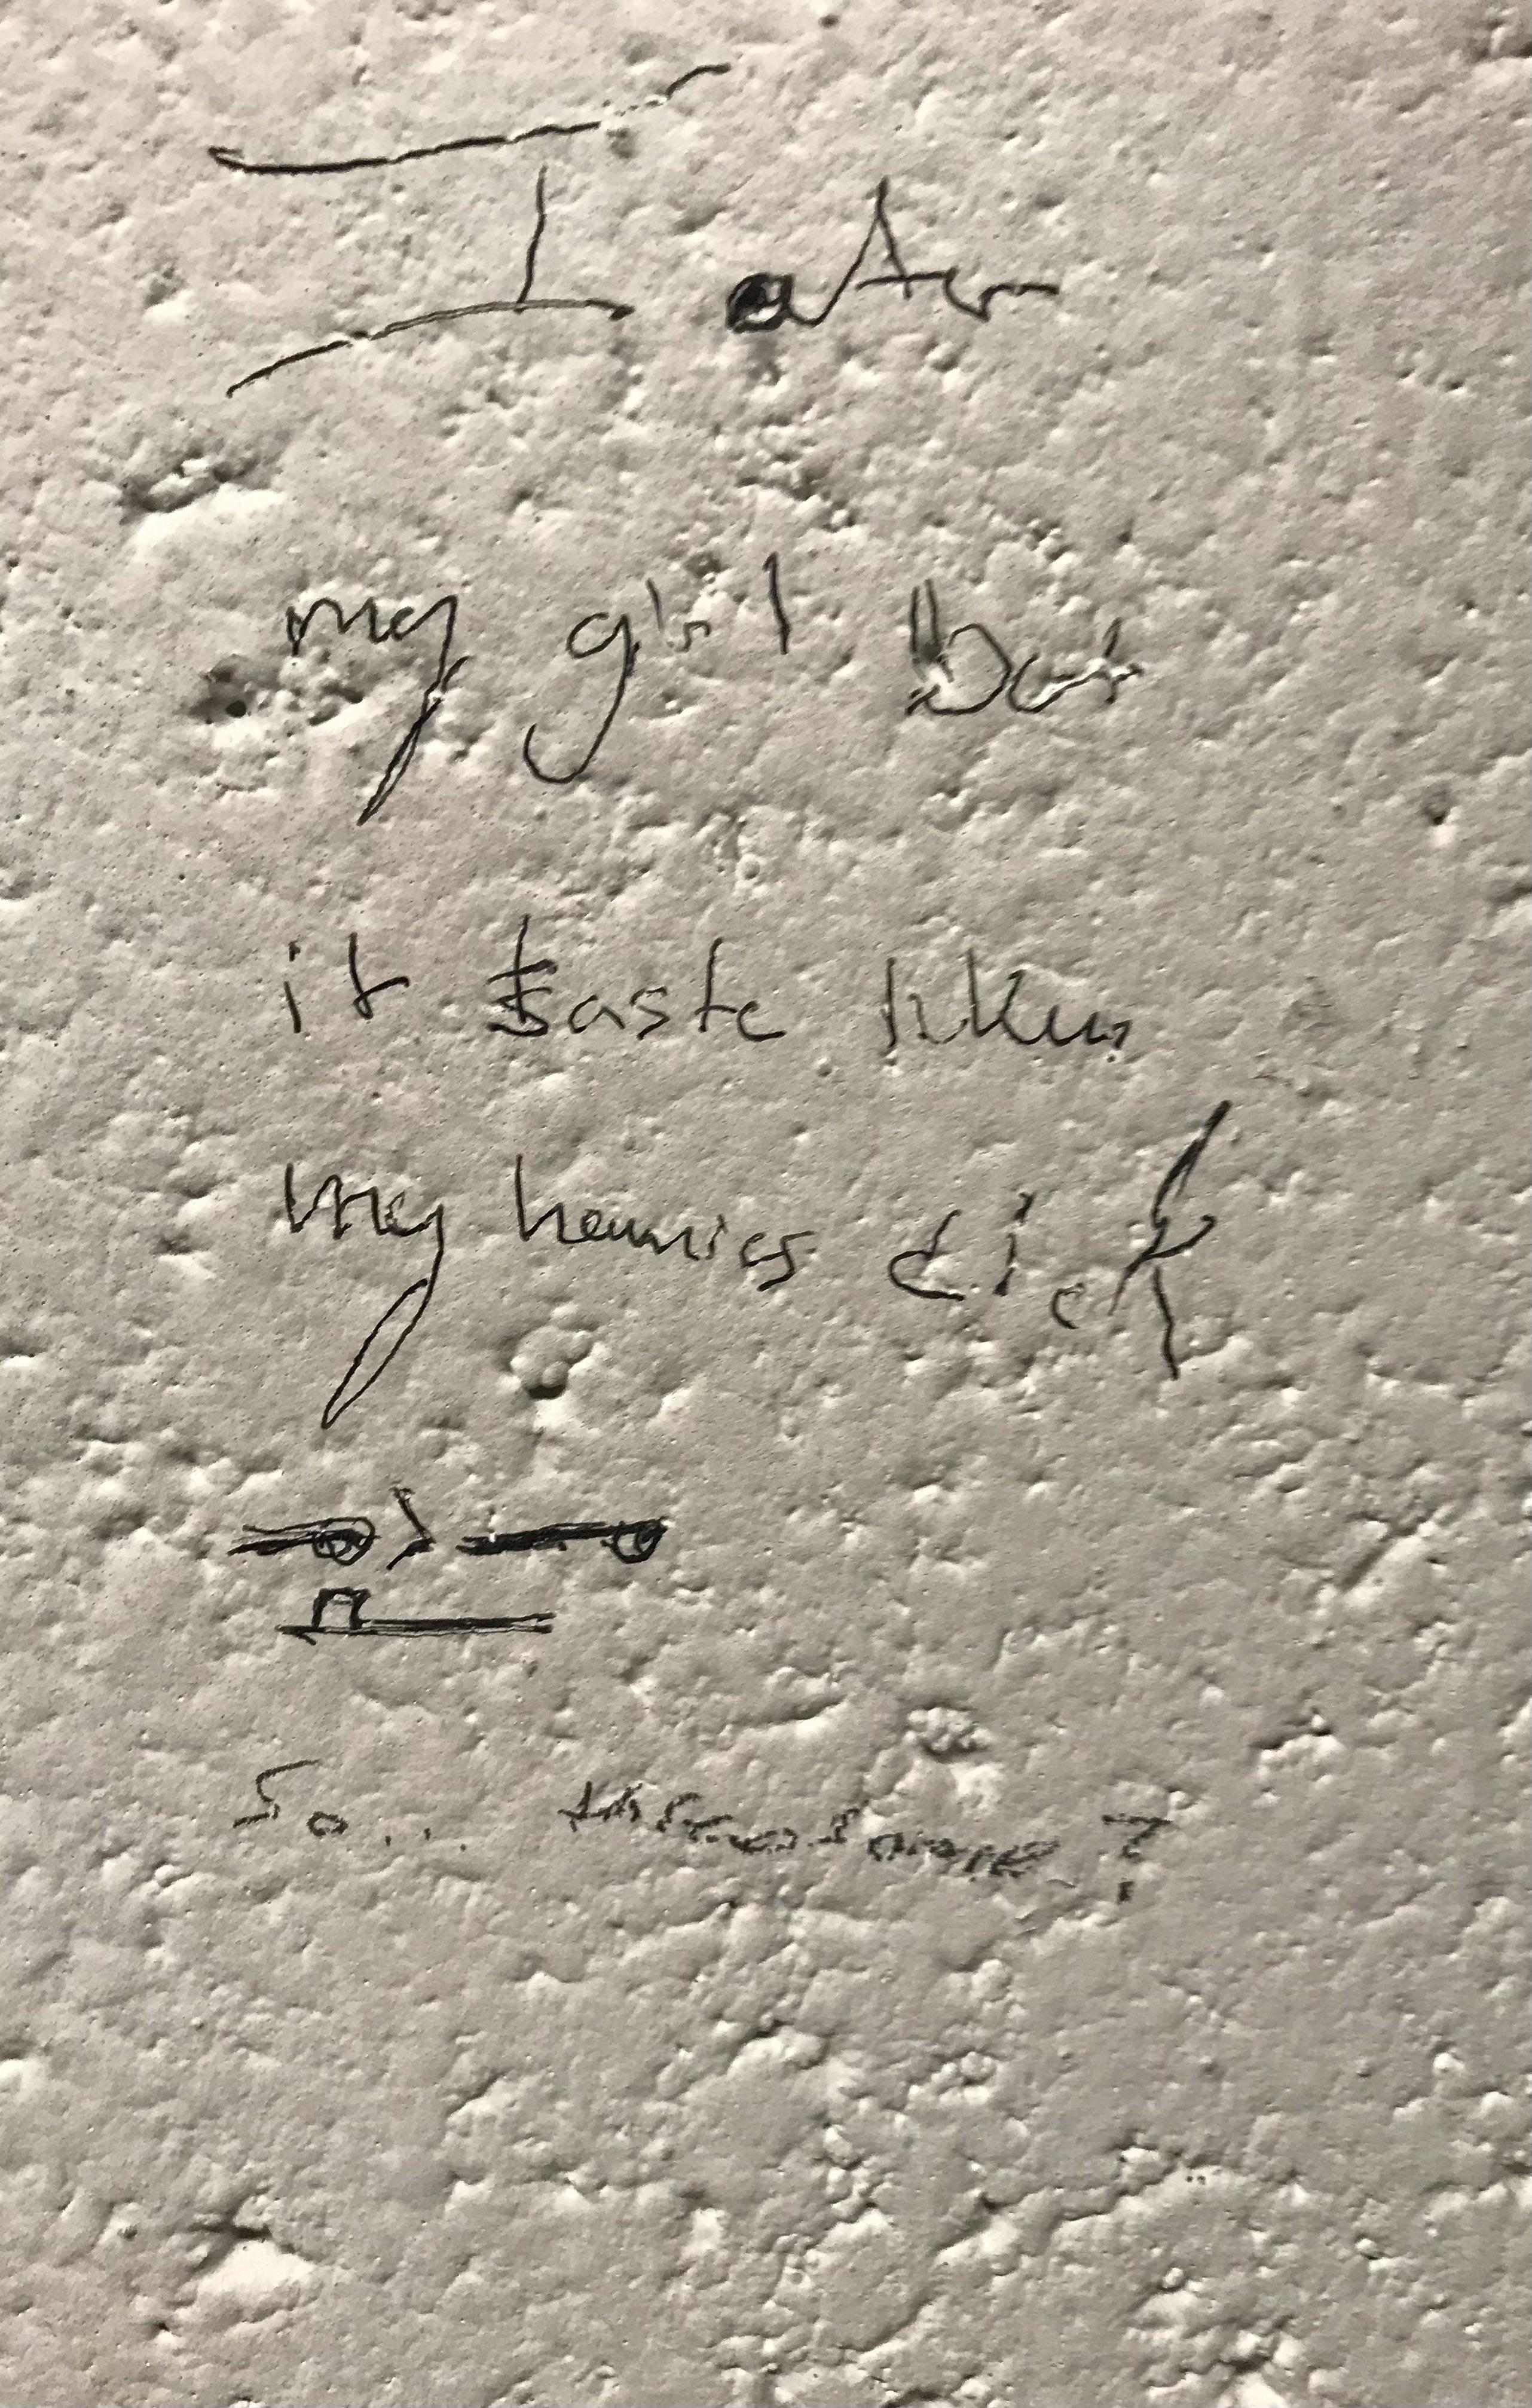 I ate
my girl but
it taste like
my homies dick
So... threesome?